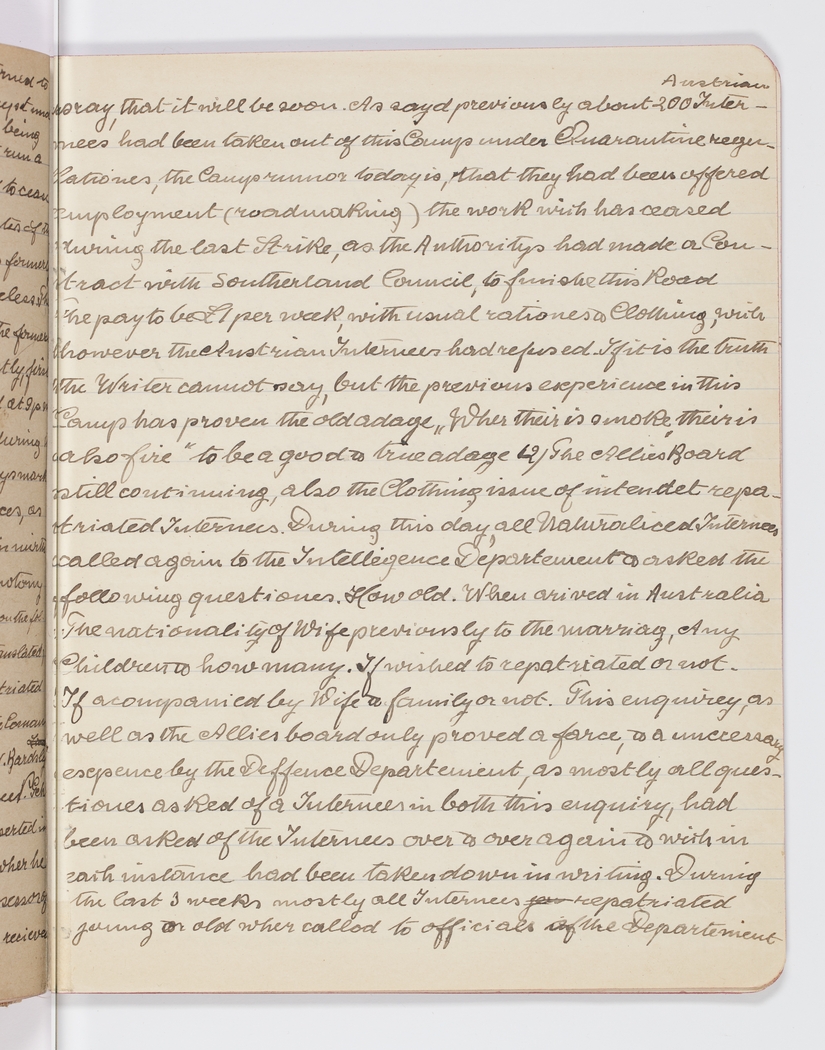 Austrian
say, that it will be soon. As sayd previously about 200 Inter-
nees had been taken out of this Camp under Quarantine regu-
lationes, the Camp rumor today is, that they had been offered
employment (roadmaking) the work wich has ceased
during the last Strike, as the Authoritys had made a Con-
tract with Southerland Council, to finishe this Road
The pay to be £1 per week, with usual rationes & Clothing, wich
however the Austrian Internees had refused. If it is the truth
the Writer cannot say, but the previous experience in this
Camp has proven the old adage „Wher their is smoke, their is
also fire" to be a good & true adage 12) The Allies Board
still continuing, also the Clothing issue of intendet repa-
triated Internees. During this day, all Naturaliced Internees
called again to the Intellegence Departement & asked the
following questiones. How old. When arived in Australia
The nationality of Wife previously to the marriag, Any
Children & how many. If wished to repatriated or not.
If acompanied by Wife & family or not. This enquirey, as
well as the Allies board only proved a farce, & a unccessary
exepence by the Deffence Departement, as mostly all ques-
tiones asked of a Internees in both this enquiry, had
been asked of the Internees over & over again & wich in
each instance had been taken down in writing. During
the last 3 weeks mostly all Internees repatriated
young or old wher called to officials of the Departement